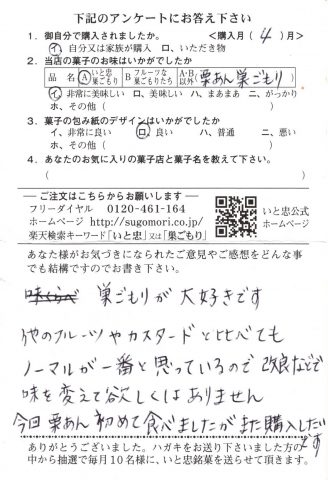 下記のアンケートにお答え下さい
1. 御自分で購入されましたか。 <購入月( 4 )月>
イ、自分又は家族が購入 ロ、いただき物
2. 当店の菓子のお味はいかがでしたか
品 名 Ⓐいと忠巣ごもり Ⓑフルーツな巣ごもりたち A・B以外 栗あん巣ごもり
イ、非常に美味しい ロ、美味しい ハ、まあまあ ニ、がっかり
ホ、その他( )
3. 菓子の包み紙のデザインはいかがでしたか
イ、非常に良い ロ、良い ハ、普通 ニ、悪い
ホ、その他( )
4. あなたのお気に入りの菓子店と菓子名を教えて下さい。
( )
ご注文はこちらからお願いします
フリーダイヤル 0120-461-164
ホームページ http://sugomori.co.jp/
楽天検索キーワード「いと忠」又は「巣ごもり」
いと忠公式
ホームページ
あなた様がお気づきになられたご意見やご感想をどんな事
でも結構ですのでお書き下さい。
巣ごもりが大好きです
他のフルーツやカスタードと比べても
ノーマルが一番と思っているので改良などで
味を変えて欲しくはありません
今回栗あん初めて食べましたがまた購入したい
です
ありがとうございました。ハガキをお送り下さいました方の
中から抽選で毎月10名様に、いと忠銘菓を送らせて頂きます。